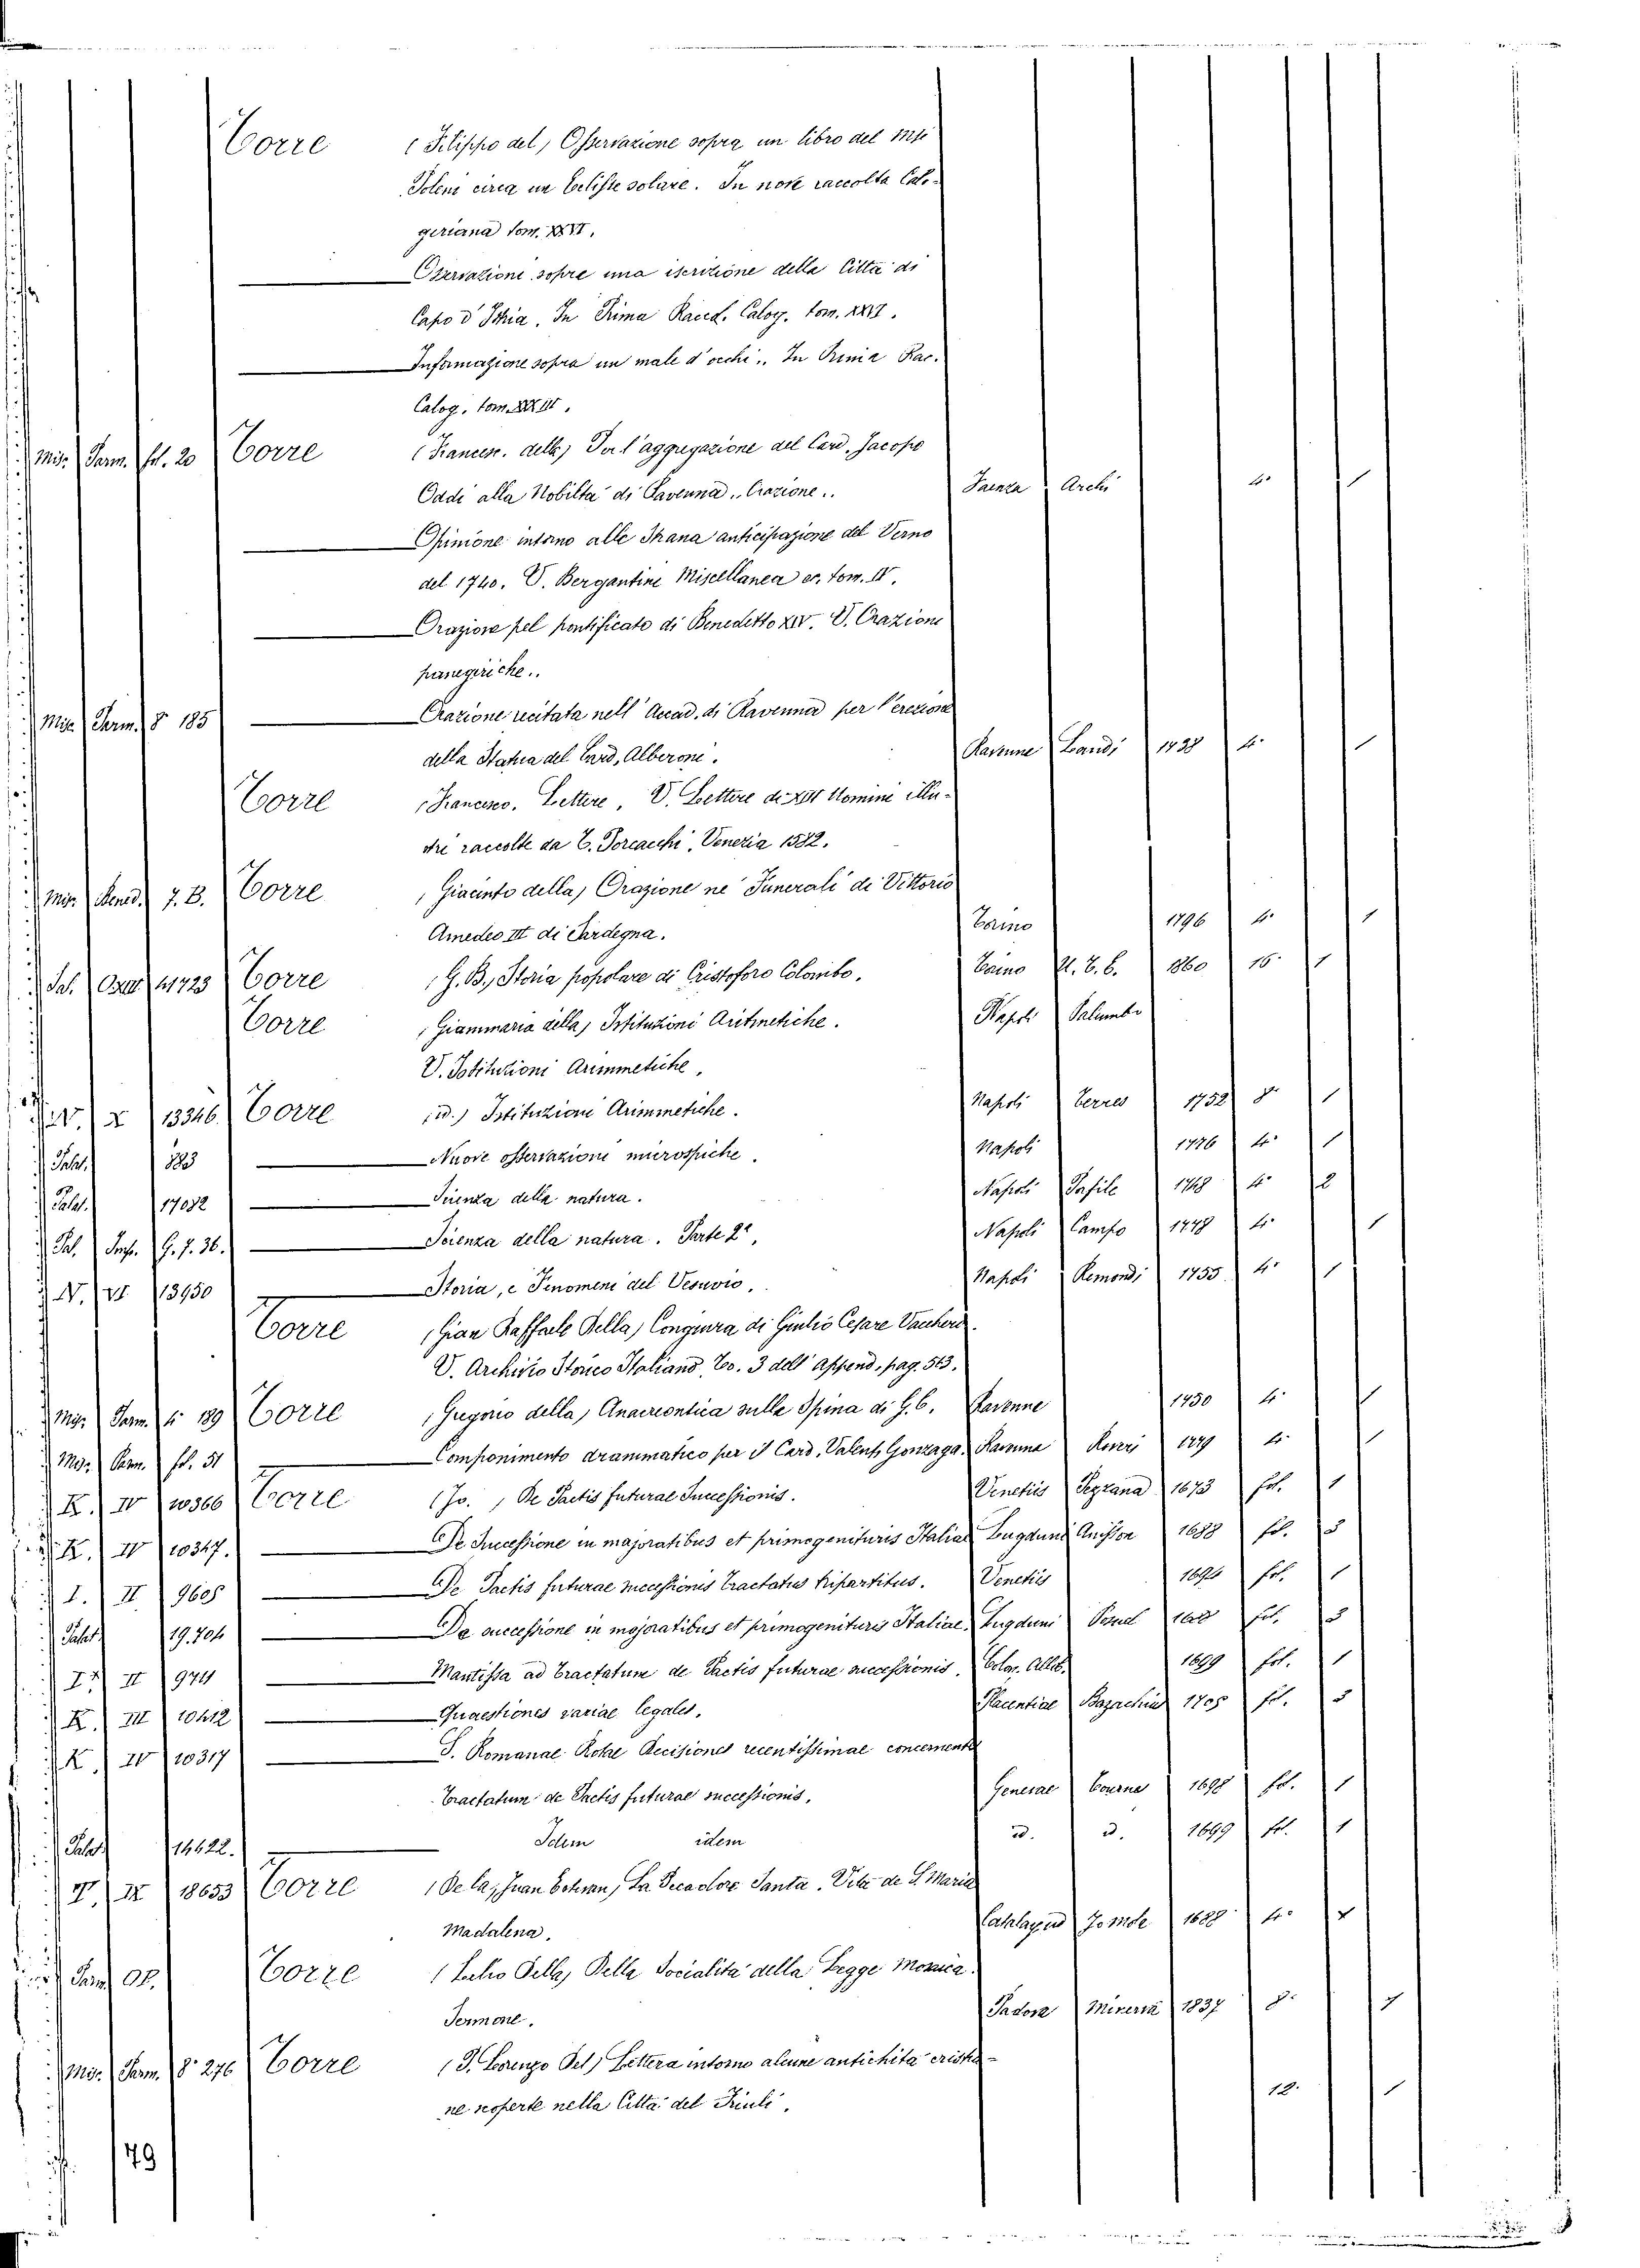 Torre (Filippo del) Osservazione sopra un libro del
Poleni circa un Eclisse solare. In raccolta Calo-
geriana tom. XXVI.
Osservazione sopra una iscrizione della Città di
Capo d'Istria. In Prima Racco. Calog. tom. XXII.
Informazione sopra un male d'occhi.. In Prima Rac.
Calog. tom. XXIII.
Mis. Parm. fol. 20 Torre (Francesc. della) Per l'aggregazione del Card. Jacopo
Oddi alla Nobiltà di Ravenna.. Orazione.. Faenza Archi 4. 1
Opinione intorno alle Strana anticipazione del Verno
del 1740. V. Bergantini Miscellanea tom. IV.
Orazione pel pontificato di Benedetto XIV. V. Orazione
panegiriche..
Mis. Parm. 8° 185 Orazione recitata nell' Accad. di Ravenna per l'erezione
della Statua del Card. Alberoni. Ravenna Landi 1738 4. 1
Torre (Francesco. Lettere, V. Lettere di XIII Uomini illu-
stri raccolte da T. Porcacchi, Venezia 1582.
Mis. 7. B. Torre (Giacinto della) Orazione ne' Funerali di Vittorio
Amedeo III di Sardegna. Torino 1796 4. 1
Torre (G. B.) Storia popolare di Cristoforo Colombo. Torino 1860 16. 1
Torre (Giammaria della) Istituzioni Aritmetiche. Napoli Palumbo
V. Istituzioni Arimmetiche.
V. X 13346. Torre (id.) Istituzioni Arimmetiche. Napoli Terres 1752 8. 1
Palat. 883 Nuove osservazioni microspiche. Napoli 1776 4. 1
Palat. 17082 Scienza della natura. Napoli 1748 4. 2
Pal. G. 7. 36. Scienza della natura. Parte 2ª, Napoli Campo 1748 4. 1
N. VI 13950 Storia, e Fenomeni del Vesuvio. Napoli Remondi 1755 4. 1
Torre (Gian Raffaele Della) Congiura di Giulio Cesare Vachero.
V. Archivio Storico Italiano, To. 3 dell' Append. pag. 513.
Mis. Parm. 4° 189 Torre (Gregorio della) Anacreontica sulla Spina di G. C. Ravenne 1750 4. 1
Mis. Parm. fol. 51 Componimento drammatico per il Card. Valenti Gonzaga. Ravenna 4. 1
K. IV 10366 Torre (Jo.) De Pactis futurae Successionis. Venetiis 1673 fol. 1
K. IV 10347. De Successione in majoratibus et primogenituris Italiae Lugduni Anisson 1688 fol. 3
I. II 9608 De Pactis futurae successionis Tractatus tripartitus. Venetiis fol. 1
Palat. 19.704 De successione in majoratibus et primogenituris Italiae. Lugduni fol. 3
I. II 9711 Mantissa ad Tractatum de Pactis futurae successionis. 1699 fol. 1
K. III 10412 Quaestiones variae legales. Placentiae Bazachius 1705 fol. 3
K. IV 10317 S. Romanae Rotae Decisiones recentissimae concernentes
Tractatum de Pactis futurae successionis. Genevae Tournes 1698 fol. 1
Palat. 14622. Idem idem id. id. 1699 fol. 1
V. IX 18653 Torre (De la, Juan Estevan) La Pecadora Santa. Vita de S. Maria
Madalena. 1688 4.
Torre (Lelio Della) Della Socialità della Legge Mosaica.
Sermone. Padova Minerva 1837 8. 1
Mis. Parm. 8° 276 Torre (P. Lorenzo Del) Lettera intorno alcune antichità cristia-
ne scoperte nella Città del Friuli. 12. 1
79